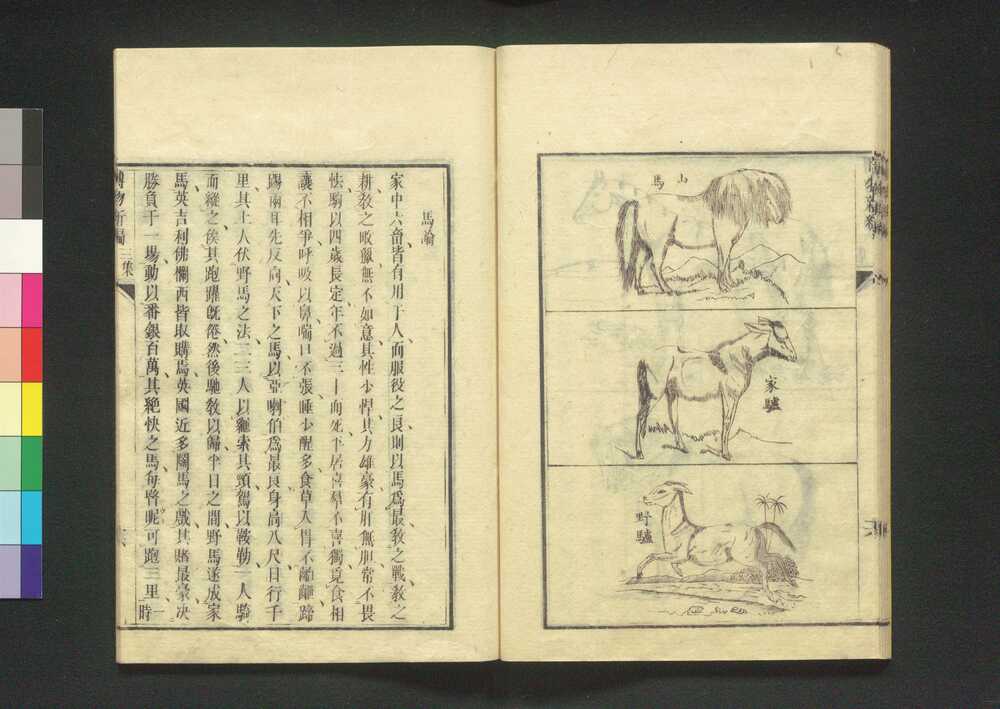 山馬
家驢
野驢
馬論
家中六畜皆有用于人而服役之良則以馬爲最敎之戰敎之
耕敎之畋獵無不如意其性少悍其力雄豪有肝無胆常不畏
怯駒以四歲長定年不過三十而死平居喜羣不喜獨覓食相
讓不相爭呼吸以鼻喘口不張睡少醒多食草入胃不齝離蹄
踢兩耳先反向天下之馬以亞喇伯爲最良身高八尺日行千
里其土人伏野馬之法二三人以繩索其頸駕以鞍勒一人騎
而縱之俟其跑躍旣倦然後馳敎以歸半日之間野馬遂成家
馬英吉利佛欄西皆取購焉英國近多鬪馬之戲其賭最豪决
勝負于一塲動以番銀百萬其絶快之馬每啓呢可跑三里一時
博物新編 三集